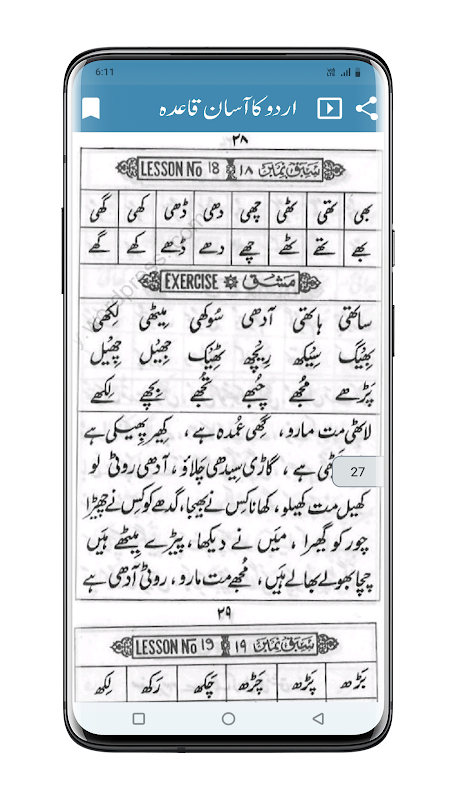 6:11
اردو کا آسان قاعدہ
۲۸
LESSON No 18 سبق نمبر ۱۸
بھی تھی ٹھی چھی دھی ڈھی کھی گھی
بھے تھے ٹھے چھے دھے ڈھے کھے گھے
EXERCISE مشق
ساتھی ہاتھی آدھی سُوکھی مِیٹھی لِکھی
بِھیگ سِیکھ رِیچھ ٹِھیک جِھیل چِھیل
پَڑھے مُجھے چُبھے تُجھے بِچھے لِکھے
لاٹھی مت مارو ، گھی عُمدہ ہے ، کھیر پھیکی ہے
ہے ، گاڑی سیدھی چلاؤ ، آدھی روٹی لو
کھیل مت کھیلو ، کھانا کس نے بھیجا ، گدھے کو کس نے چھیڑا
چور کو گھیرا ، میں نے دیکھا ، پیڑے میٹھے ہیں
چچا بھولے بھالے ہیں ، مُجھے مت مارو ، روٹی آدھی ہے
27
۲۹
LESSON No 19 سبق نمبر ۱۹
بَڑھ پَڑھ چَڑھ چَکھ رَکھ لِکھ